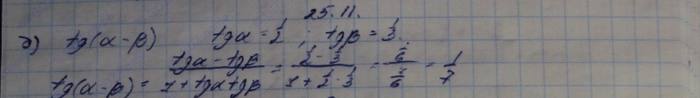 25.11.
б) tg(α-β) tgα = 1/2 ; tgβ = 1/3.
tg(α-β) = (tgα - tgβ)/(1 + tgα tgβ) = (1/2 - 1/3)/(1 + 1/2 · 1/3) = (1/6)/(7/6) = 1/7